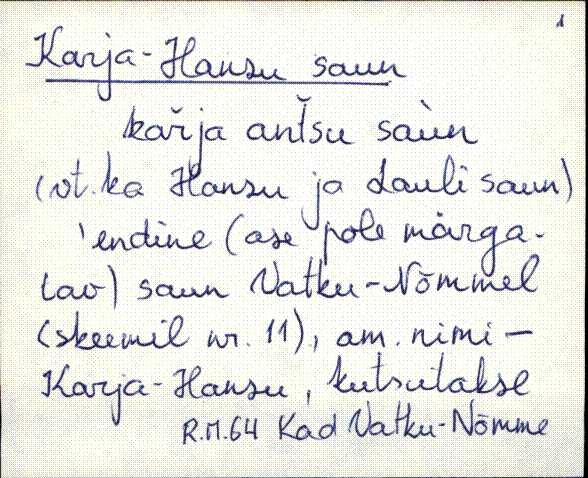 1
Karja-Hansu saun
kar̆ja ant̆su saùn
(vt. ka Hansu ja Lauli saun)
'endine (ase pole märga-
tav) saun Vatku-Nõmmel
(skeemil nr. 11), am. nimi –
Karja-Hansu, kutsutakse
R.M.64 Kad Vatku-Nõmme